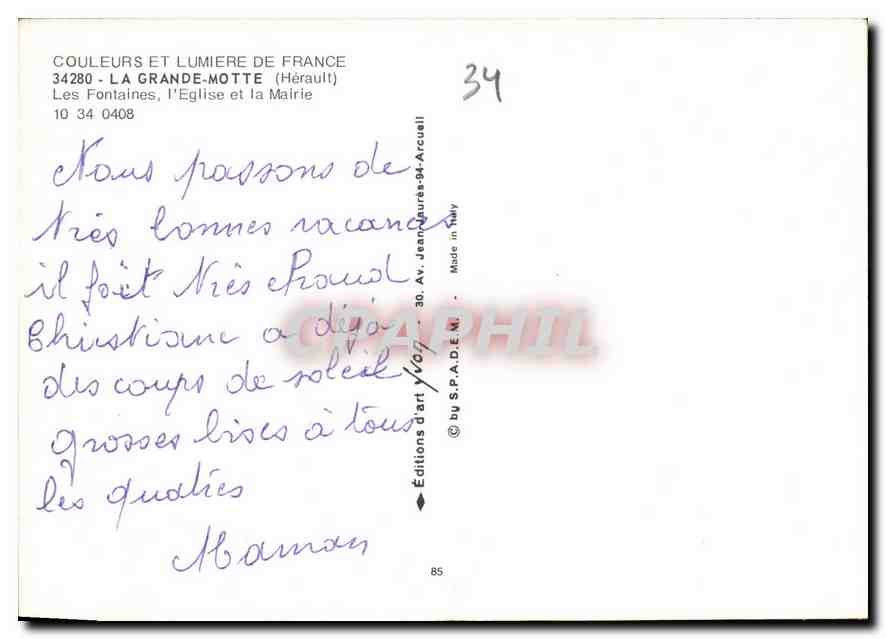 COULEURS ET LUMIERE DE FRANCE
34280 - LA GRANDE-MOTTE (Hérault)
Les Fontaines, l'Eglise et la Mairie
10 34 0408
34
Nous passons de
très bonnes vacances
il foët très chaud
Christiane a déjà
des coups de soleil
grosses bises à tous
les quatres
Maman
Éditions d'art Yvon 30. Av. Jean-Jaurès-94-Arcueil
© by S.P.A.D.E.M. - Made in Italy
85
CPAPHIL